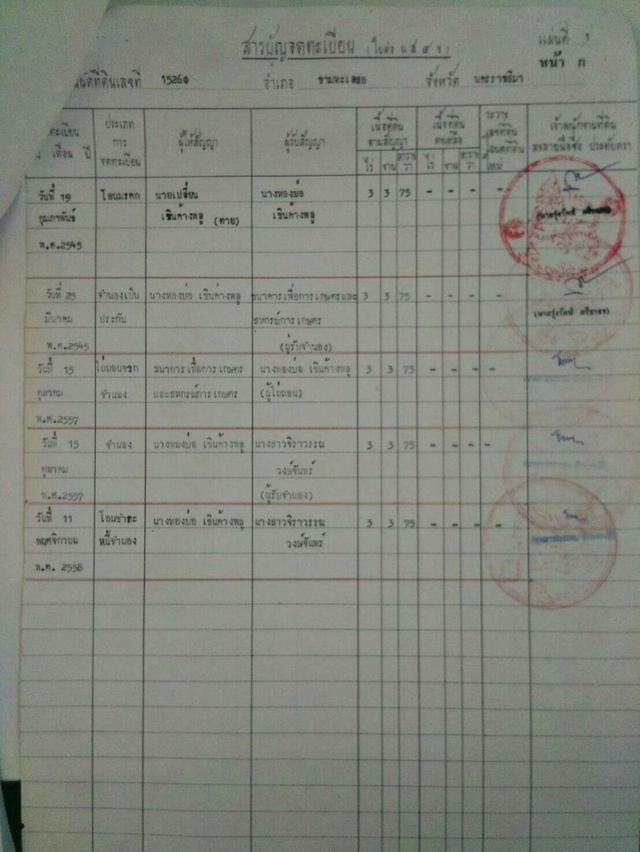 สารบัญจดทะเบียน (ใบต่อ น.ส ๔ จ)
แผ่นที่ 1
หน้า ก
ที่ดินเลขที่ 15260 อำเภอ ขามทะเลสอ จังหวัด นครราชสีมา
ทะเบียน เดือน ปี
ประเภท การ จดทะเบียน
ผู้ให้สัญญา
ผู้รับสัญญา
เนื้อที่ดิน ตามสัญญา
ไร่ งาน ตาราง วา
เนื้อที่ดิน คงเหลือ
ไร่ งาน ตาราง วา
ระวาง เลขที่ดิน ใหม่
เจ้าพนักงานที่ดิน ลงลายมือชื่อ ประทับตรา
วันที่ 19 โอนมรดก นายเปลี่ยน นางทองบ่อ 3 3 75 - - - -
กุมภาพันธ์ เชินค้างพลู (ตาย) เชินค้างพลู
พ.ศ.2545
วันที่ 25 จำนองเป็น นางทองบ่อ เชินค้างพลู ธนาคารเพื่อการเกษตรและ 3 3 75 - - - -
มีนาคม ประกัน สหกรณ์การเกษตร
พ.ศ.2545 (ผู้รับจำนอง)
วันที่ 15 ไถ่ถอนจาก ธนาคารเพื่อการเกษตร นางทองบ่อ เชินค้างพลู 3 3 75 - - - -
ตุลาคม จำนอง และสหกรณ์การเกษตร (ผู้ไถ่ถอน)
พ.ศ.2557
วันที่ 15 จำนอง นางทองบ่อ เชินค้างพลู นางสาวจิราวรรณ 3 3 75 - - - -
ตุลาคม วงษ์จันทร์
พ.ศ.2557 (ผู้รับจำนอง)
วันที่ 11 โอนชำระ นางทองบ่อ เชินค้างพลู นางสาวจิราวรรณ 3 3 75 - - - -
พฤศจิกายน หนี้จำนอง วงษ์จันทร์
พ.ศ. 2558